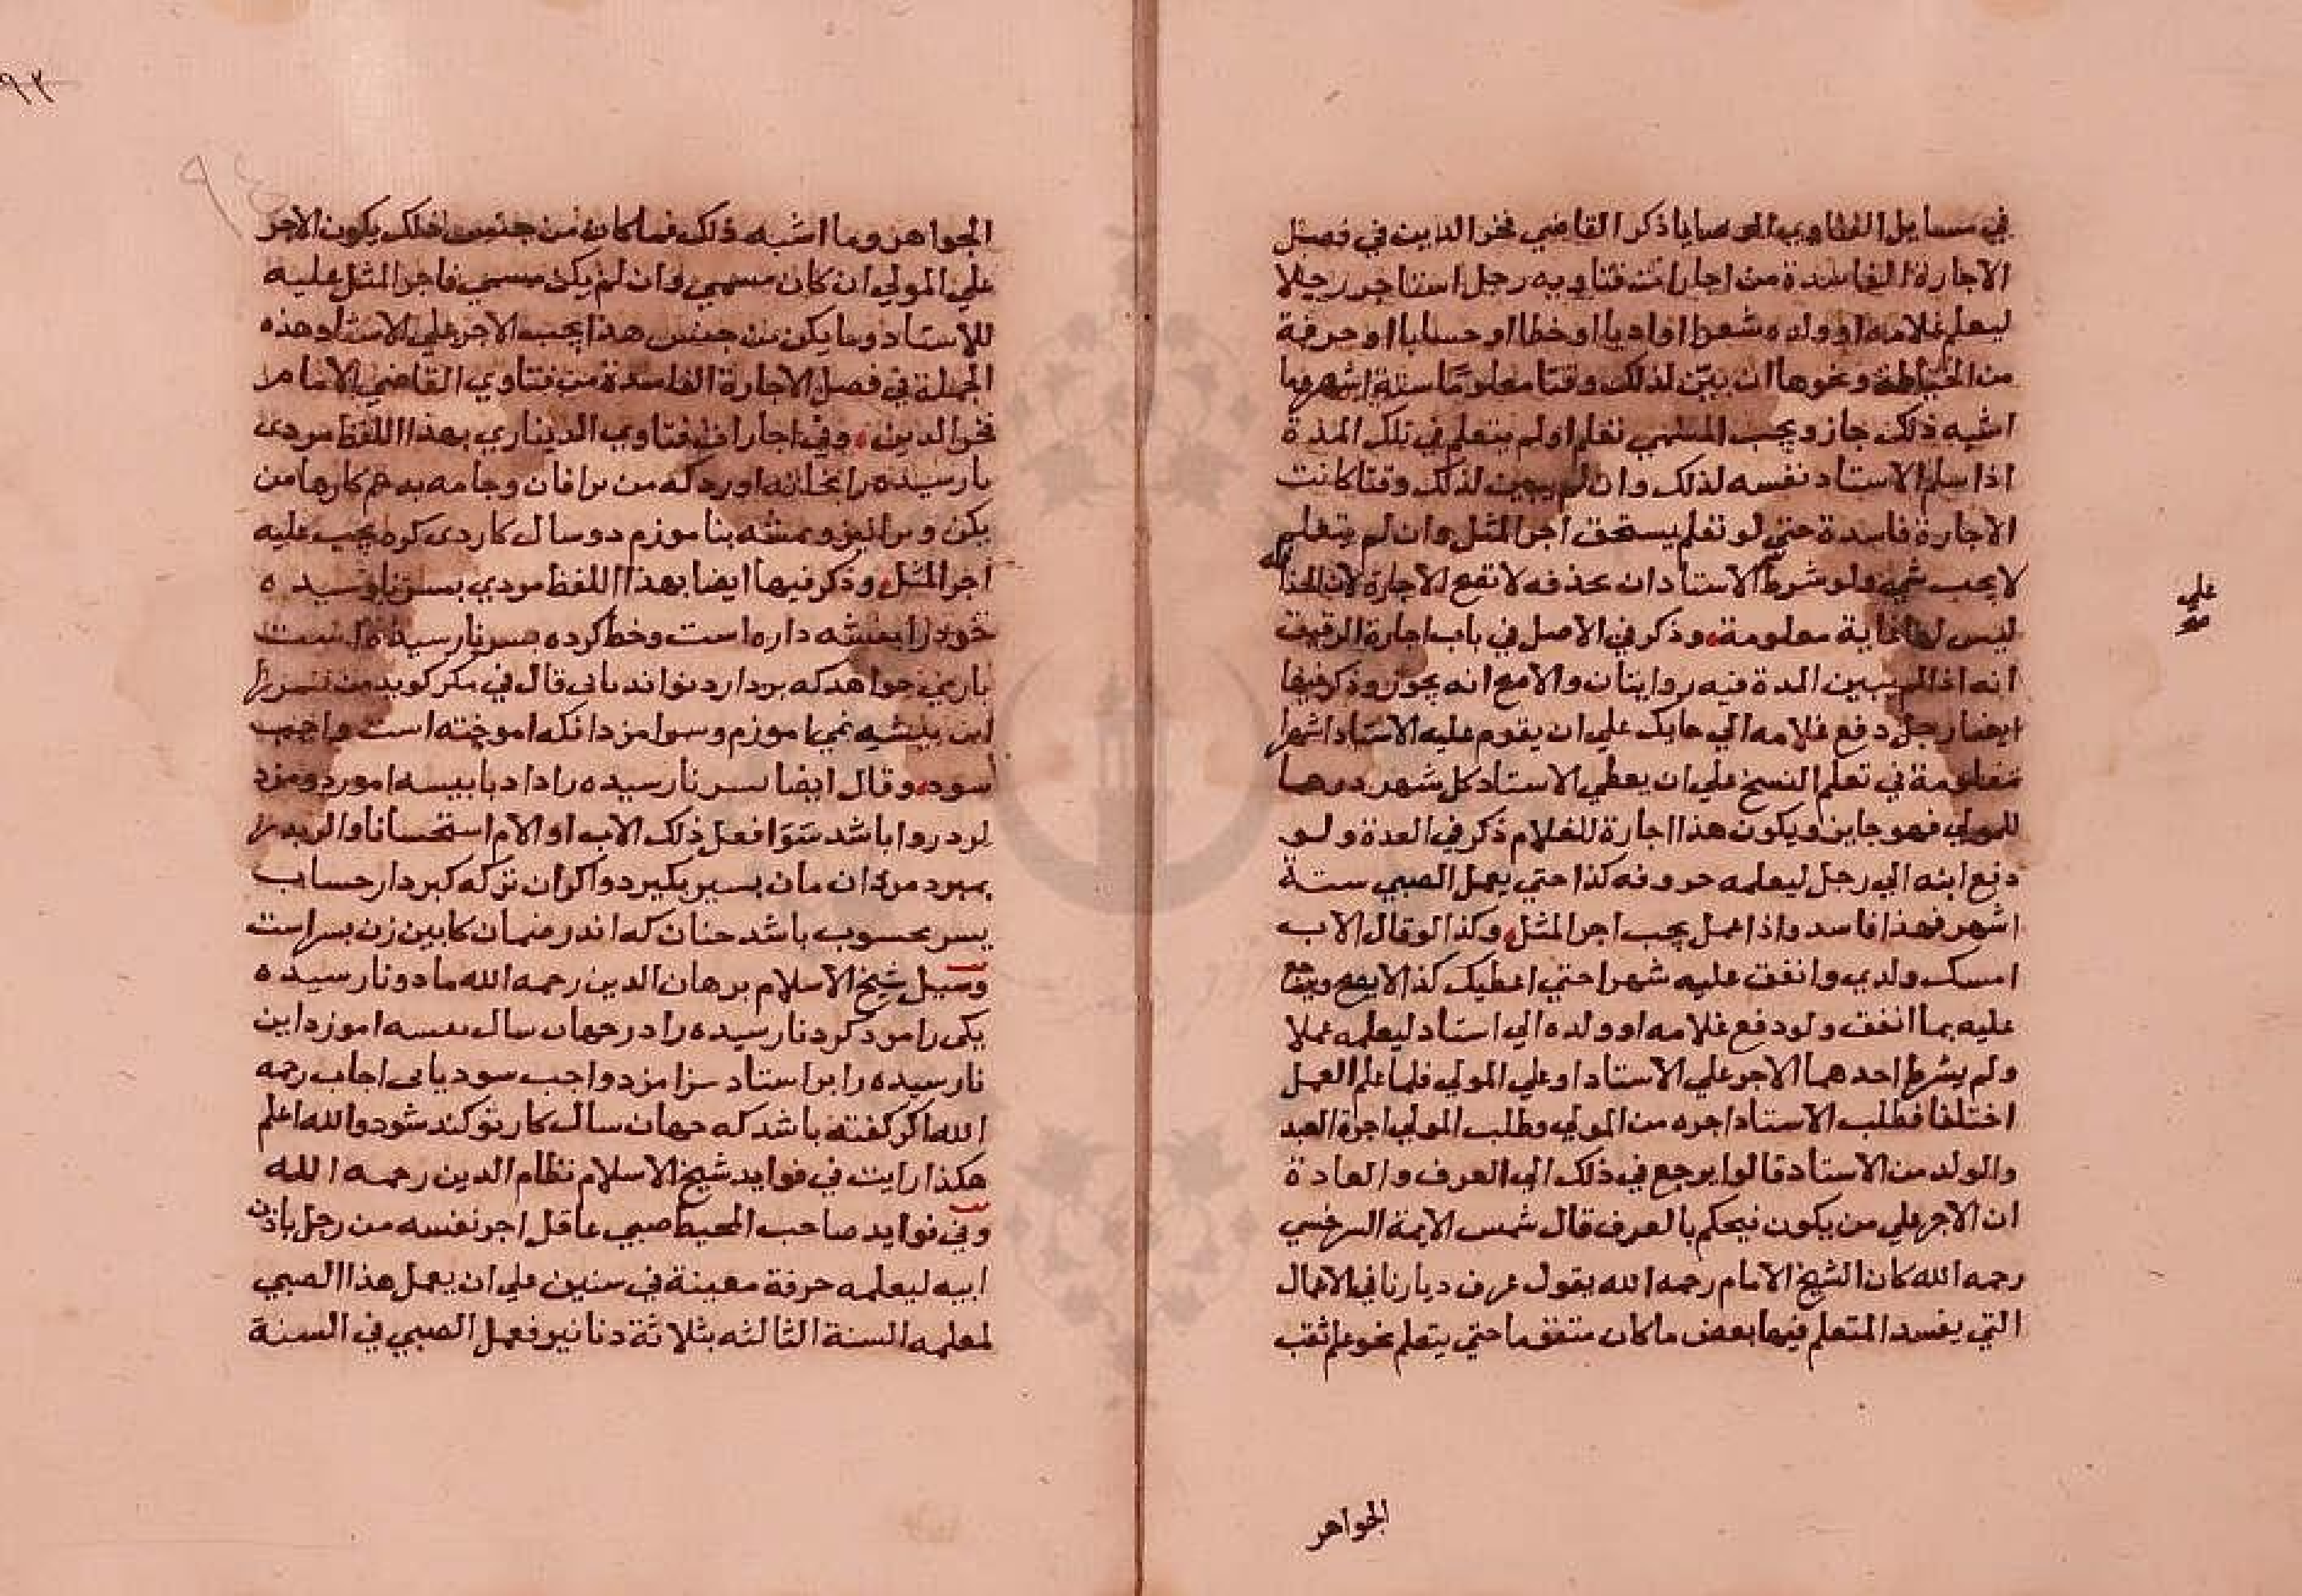 في مسايل الفتاوي الوصايا ذكر القاضي فخر الدين في فصل
الاجارة الفاسدة من اجارات فتاويه رجل استاجر رجلا
ليعلم غلامه او ولده شعرا او ادبا او خطا او حسابا او حرفة
من الخياطة ونحوها ان بين لذلك وقتا معلوما سنة اشهر وما
اشبه ذلك جاز ويجب المسمي تعلم اولم يتعلم في تلك المدة
اذا سلم الاستاد نفسه لذلك وان لم يبين لذلك وقتا كانت
الاجارة فاسدة حتي لو تعلم يستحق اجر المثل وان لم يتعلم
لا يجب شي ولو شرط الاستاد ان يحذفه لا تصح الاجارة لان الحذا
قه
علي
ليس لها غاية معلومة وذكر في الاصل في باب اجارة الرقيق
انه اذا لم يبين المدة فيه روايتان والاصح انه يجوز وذكر فيها
ايضا رجل دفع غلامه الي حايك علي ان يقوم عليه الاستاد اشهرا
معلومة في تعلم النسخ علي ان يعطي الاستاد كل شهر درهما
للمولي فهو جايز ويكون هذا اجارة للغلام ذكر في العدة ولو
دفع ابنه الي رجل ليعلمه حروفه كذا حتي يعمل الصبي ستة
اشهر فهذا فاسد واذا عمل يجب اجر المثل وكذا لو قال الاب
امسك ولدي وانفق عليه شهرا حتي اعطيك كذا لا يصح ويرجع
عليه بما انفق ولو دفع غلامه او ولده الي استاد ليعلمه عملا
ولم يشرط احدهما الاجر علي الاستاد او علي المولي فلما علم العمل
اختلفا فطلب الاستاد اجره من المولي وطلب المولي اجرة العبد
والولد من الاستاد قالوا يرجع في ذلك الي العرف والعادة
ان الاجر علي من يكون فيحكم بالعرف قال شمس الايمة السرخسي
رحمه الله كان الشيخ الامام رحمه الله يقول عرف ديارنا في الاعمال
التي يفسد المتعلم فيها بعض ما كان متفقا حتي يتعلم نحو علم ثقب
الجواهر
٩٣
٩٤
الجواهر وما اشبه ذلك فما كان من جنس ذلك يكون الاجر
علي المولي ان كان مسمي وان لم يكن مسمي فاجر المثل عليه
للاستاد وما يكن من جنس هذا يجب الاجر علي الاستاد وهذه
الجملة في فصل الاجارة الفاسدة من فتاوي القاضي الامام
فخر الدين وفي اجارات فتاوي الديناري بهذا اللفظ مردى
نارسيده را بخانه اورد كه من نرا فان وجامه بدهم كارها من
بكن و بيشه بناموزم دو سال كاردى كرد يجب عليه
اجر المثل وذكر فيها ايضا بهذا اللفظ مردي بسر نارسيده
خود را ببيشه داره است وخط كرده بسر نارسيده
باري خواهد كه بردارد تواند يانى قال في مكر كويد من
اين بيشه نمي اموزم وسوا مزد انكه اموخته است واجب
سود وقال ايضا بسر نارسيده را داد با بيسه اموزد ومزد
لرد روا باشد سوا فعل ذلك الاب او الام استحسانا
بمبرد مردان مان بسير بكيرد واكر ان تركه كبر دار حساب
بسر محسوب باشد حنان كه اندر ضمان كابين زن بسر است
وسيل شيخ الاسلام برهان الدين رحمه الله مادو نارسيده
يكى را مزد كرد نارسيده را در جهار سال بيسه اموزد اين
نارسيده را بر استاد سزا مزد واجب سود يانى اجاب رحمه
الله اكر كفته باشد كه جهار سال كار تو كند شود والله اعلم
هكذا رايت في فوايد شيخ الاسلام نظام الدين رحمه الله
وفي فوايد صاحب المحيط صبي عاقل اجر نفسه من رجل باذن
ابيه ليعلمه حرفة معينة في سنين علي ان يعمل هذا الصبي
لمعلمه السنة الثالثه بثلاثة دنانير فعمل الصبي في السنة